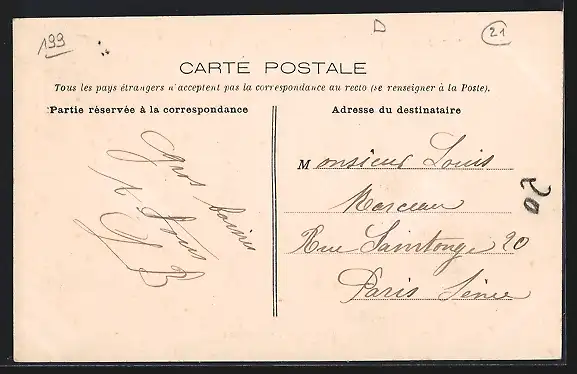 199
21
CARTE POSTALE
Tous les pays étrangers n'acceptent pas la correspondance au recto (se renseigner à la Poste).
Partie réservée à la correspondance
Gros baisers
à tous
GB
Adresse du destinataire
Monsieur Louis
Marceau
Rue Saintonge 20
Paris Seine
20